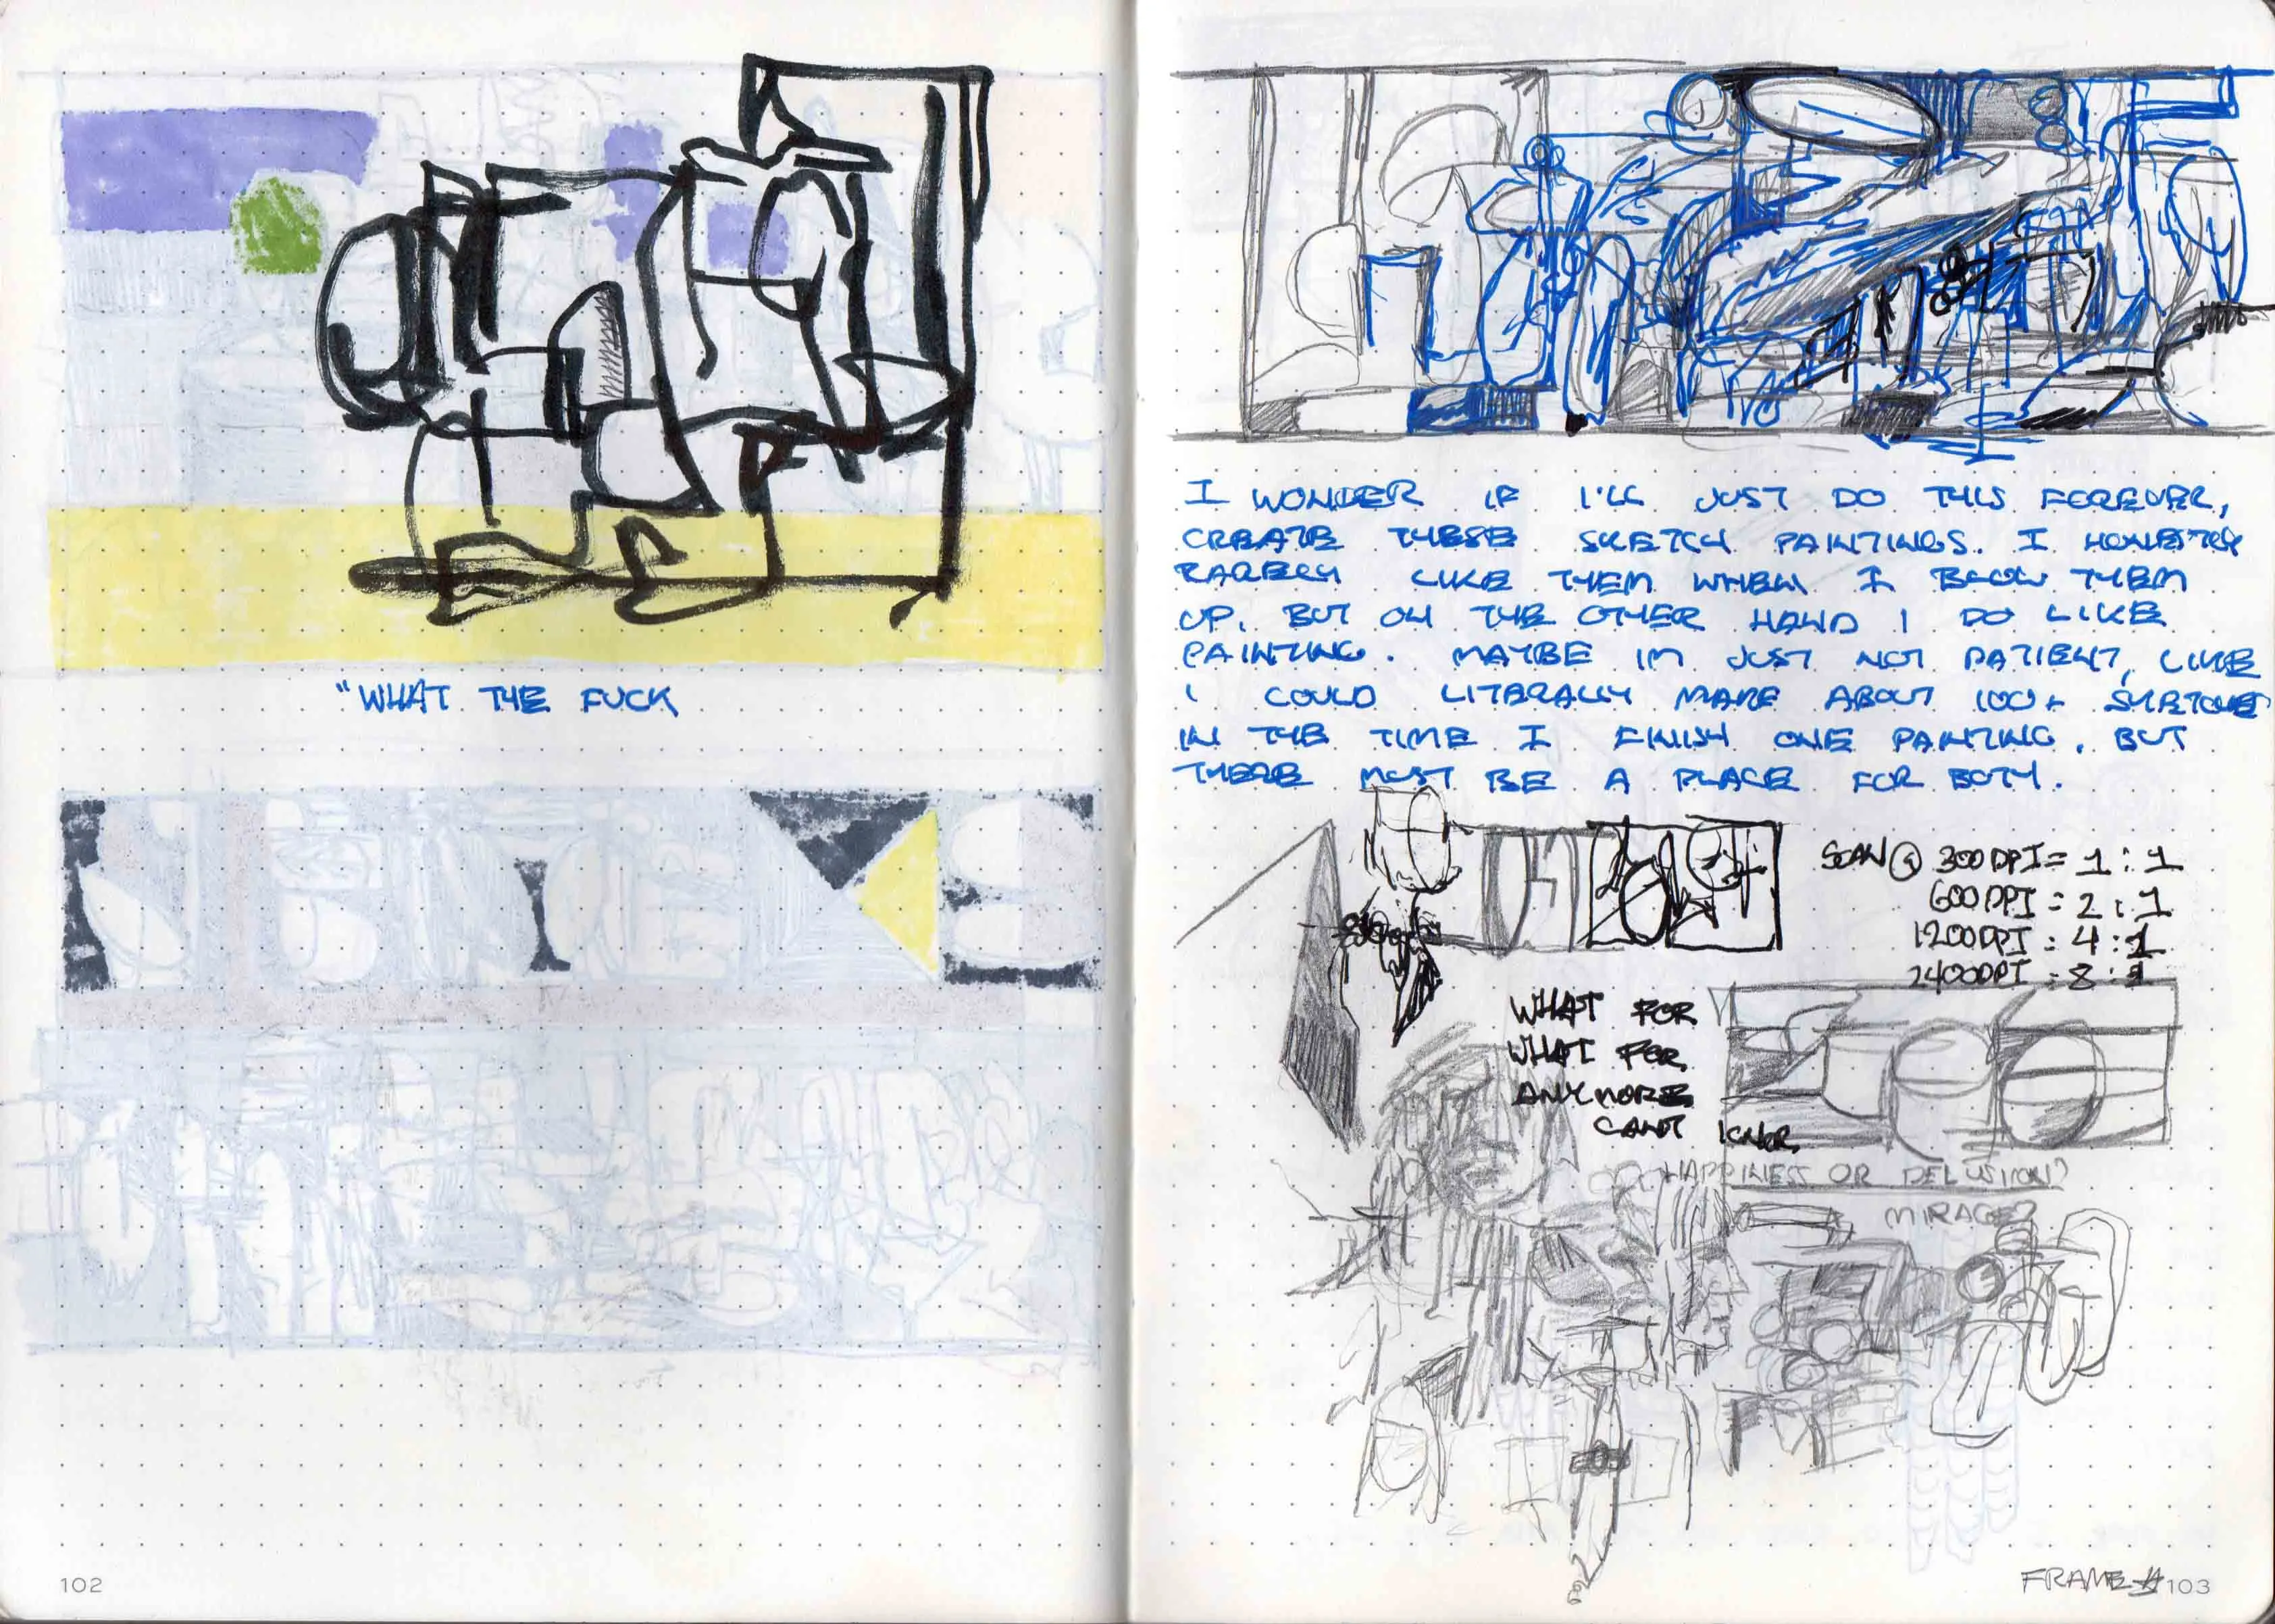 "WHAT THE FUCK
102
I WONDER IF I'LL JUST DO THIS FOREVER,
CREATE THESE SKETCH PAINTINGS. I HONESTLY
RARELY LIKE THEM WHEN I BLOW THEM
UP. BUT ON THE OTHER HAND I DO LIKE
PAINTING. MAYBE IM JUST NOT PATIENT, LIKE
I COULD LITERALLY MAKE ABOUT 100+ SKETCHES
IN THE TIME I FINISH ONE PAINTING. BUT
THERE MUST BE A PLACE FOR BOTH.
SCAN @ 300 DPI = 1:1
600 DPI = 2:1
1200 DPI = 4:1
2400 DPI = 8:1
WHAT FOR
WHAT FOR
ANYMORE
CANT IGNOR
HAPPINESS OR DELUSION?
MIRAGE?
FRAME # 103